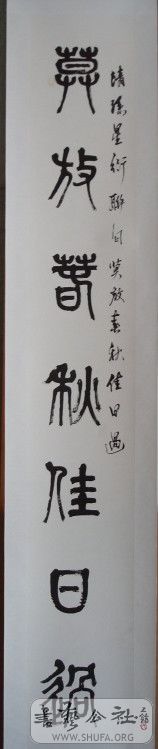 莫放春秋佳日過
清孫星衍聯句莫放春秋佳日過
書藝公社
WWW.SHUFA.ORG